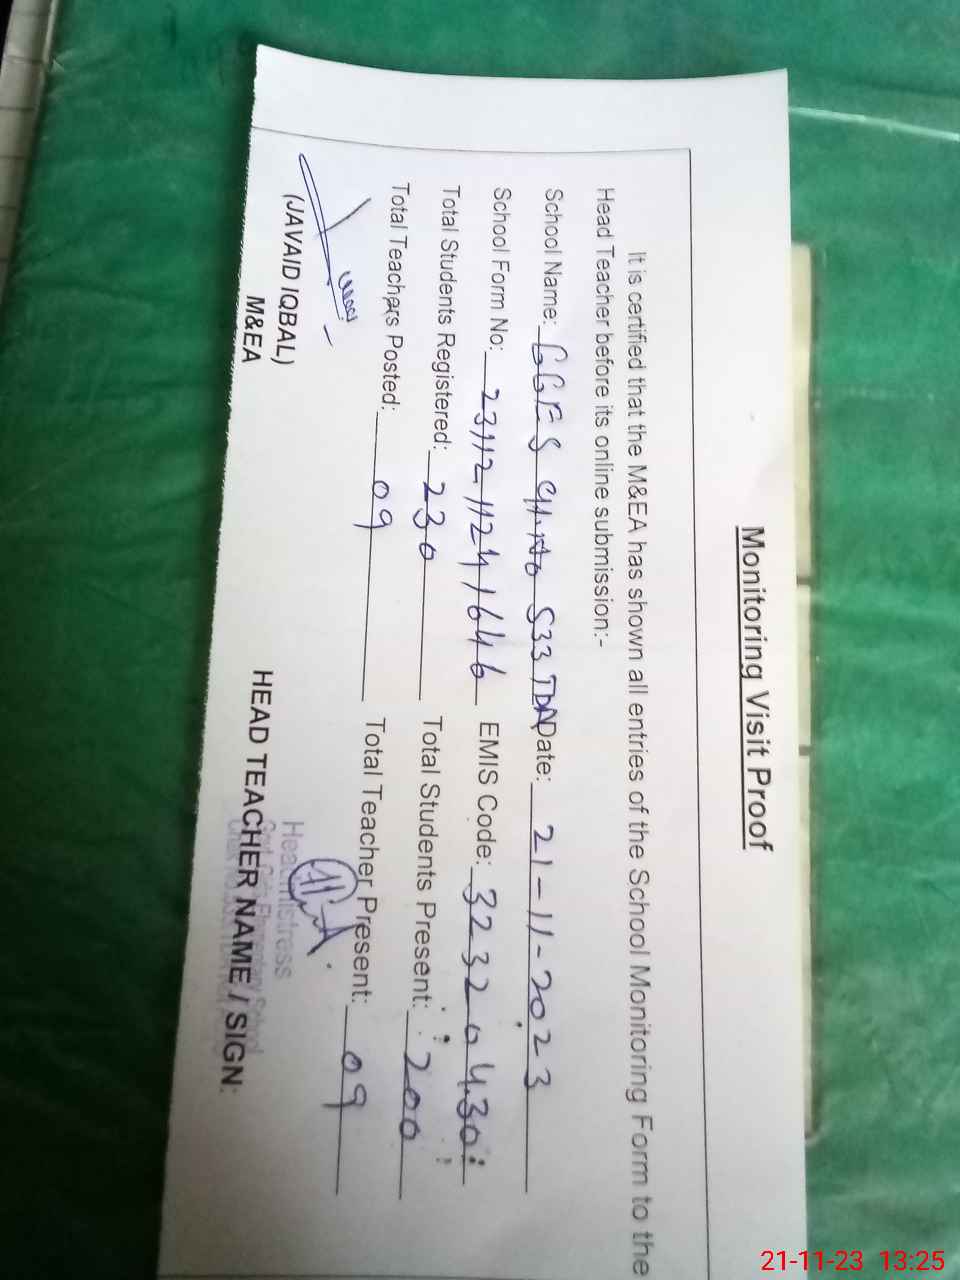 Monitoring Visit Proof
It is certified that the M&EA has shown all entries of the School Monitoring Form to the
Head Teacher before its online submission:-
School Name: GGES CH.No 533 TDA Date: 21-11-2023
School Form No: 2311211241646 EMIS Code: 32320430
Total Students Registered: 230 Total Students Present: 200
Total Teachers Posted: 09 Total Teacher Present: 09
(JAVAID IQBAL)
M&EA
Headmistress
HEAD TEACHER NAME / SIGN:
21-11-23 13:25